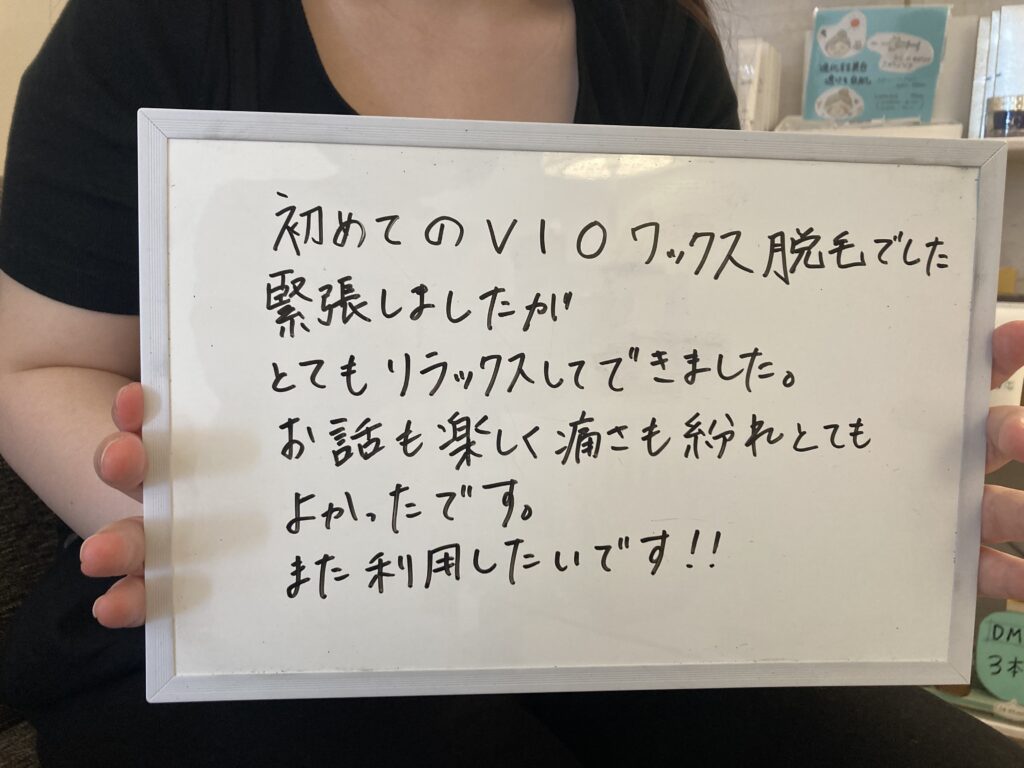 初めてのVIOワックス脱毛でした
緊張しましたが
とてもリラックスしてできました。
お話も楽しく痛さも紛れとても
よかったです。
また利用したいです!!
DM
3本